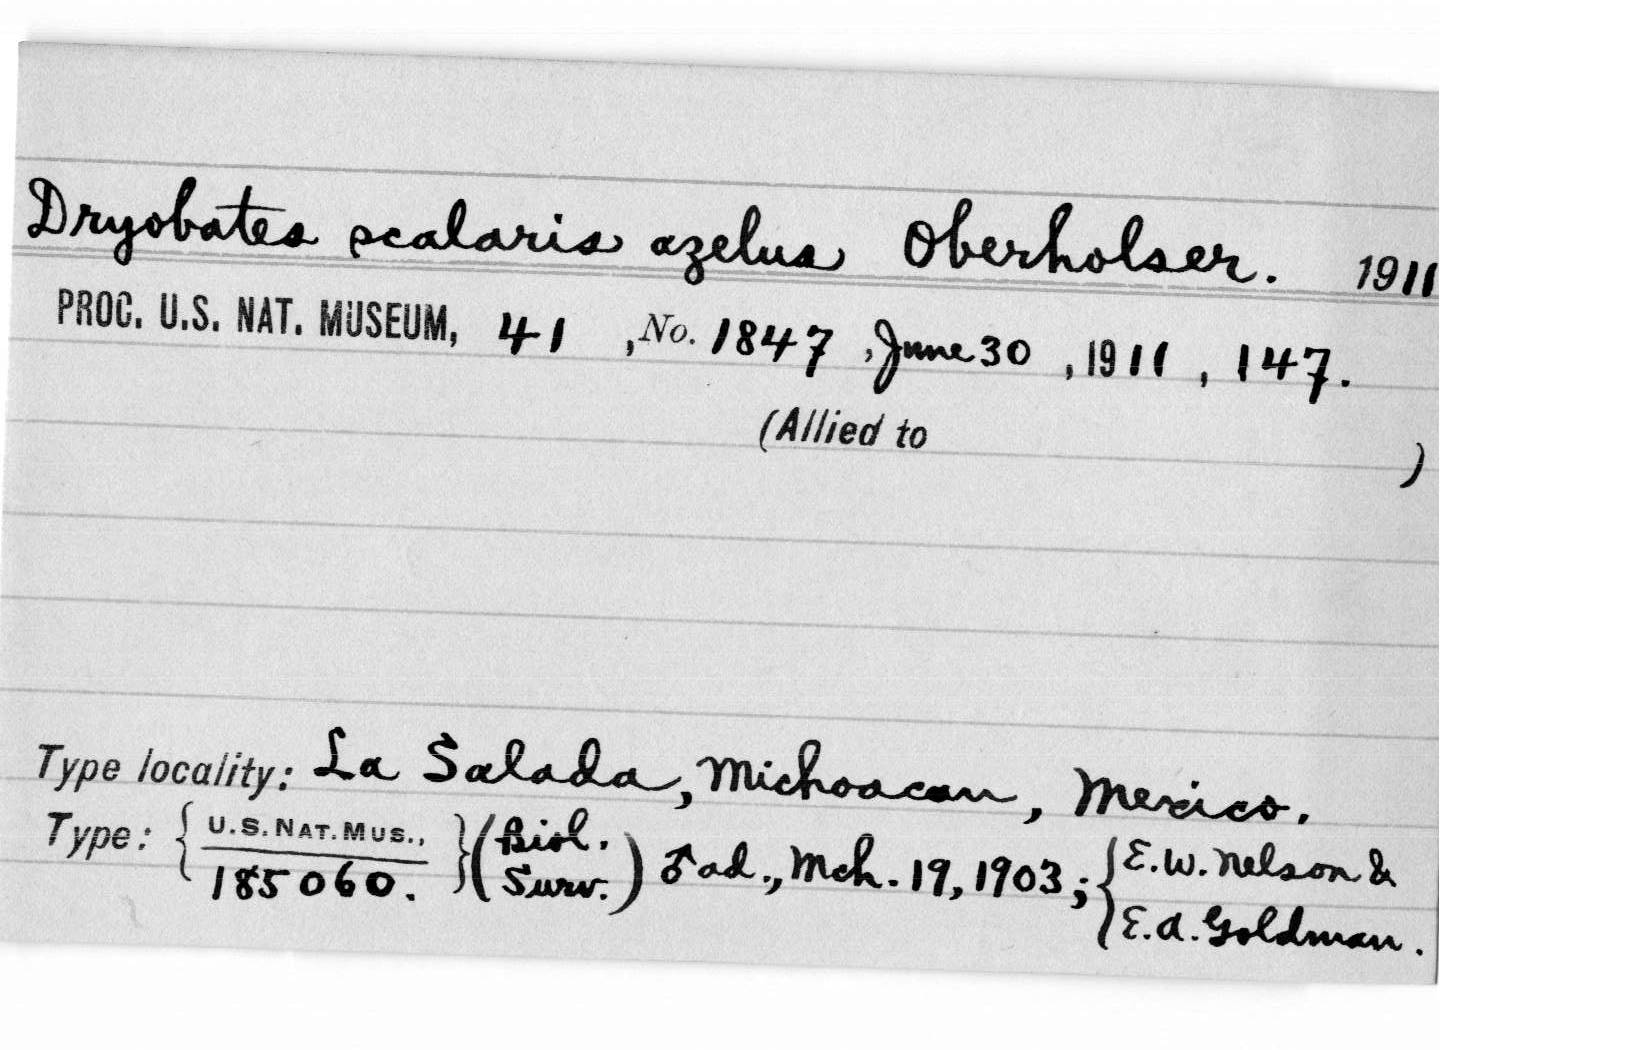 Dryobates scalaris azelus Oberholser. 1911
PROC. U.S. NAT. MUSEUM, 41 , No. 1847 , June 30 , 1911 , 147.
(Allied to )
Type locality: La Salada, Michoacan, Mexico.
Type: { U.S. NAT. MUS., 185060. } (Biol. Surv.) ♂ ad., Mch. 19, 1903; { E. W. Nelson & E. A. Goldman.